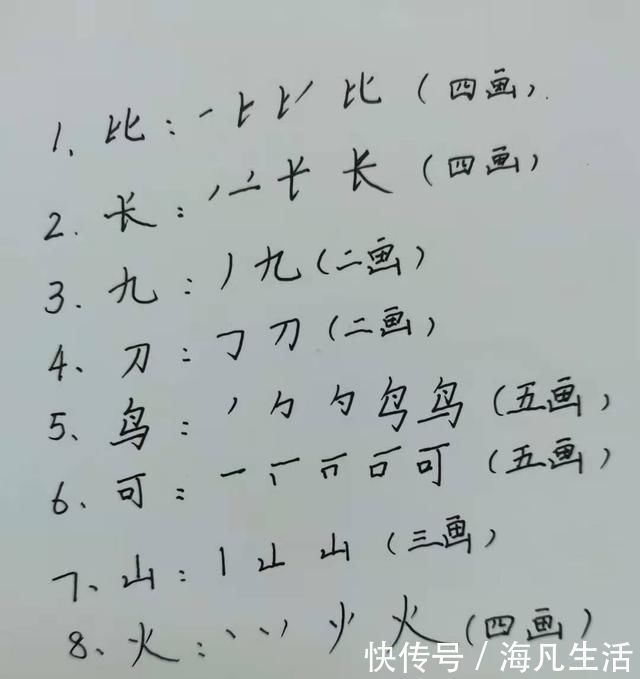 1、比：一 上 比 (四画)
2、长：丿 长 (四画)
3、九：丿九(二画)
4、刀：𠃌刀(二画)
5、鸟：丿 勹 勺 鸟 鸟(五画)
6、可：一 可 (五画)
7、山：丨 山(三画)
8、火：丶 火(四画)
快传号/海凡生活